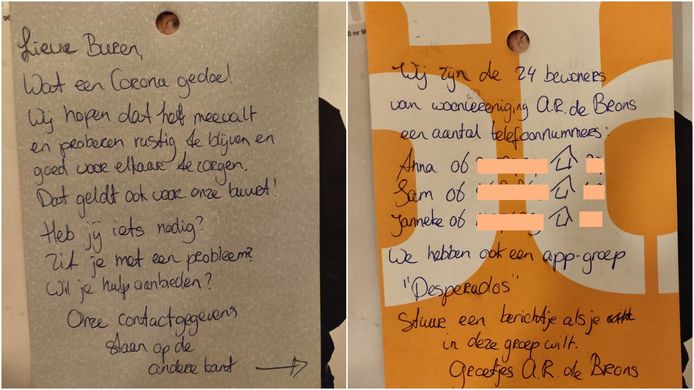 Lieve Buren,
Wat een Corona gedoe!
Wij hopen dat het meevalt
en proberen rustig te blijven en
goed voor elkaar te zorgen.
Dat geldt ook voor onze buurt!
Heb jij iets nodig?
Zit je met een probleem?
Wil je hulp aanbieden?
Onze contactgegevens
staan op de
andere kant →
Wij zijn de 24 bewoners
van woonvereniging A.R. de Brons
een aantal telefoonnummers:
Anna 06
Sam 06
Janneke 06
We hebben ook een app-groep
"Desperados"
Stuur een berichtje als je
in deze groep wilt.
Groetjes A.R. de Brons